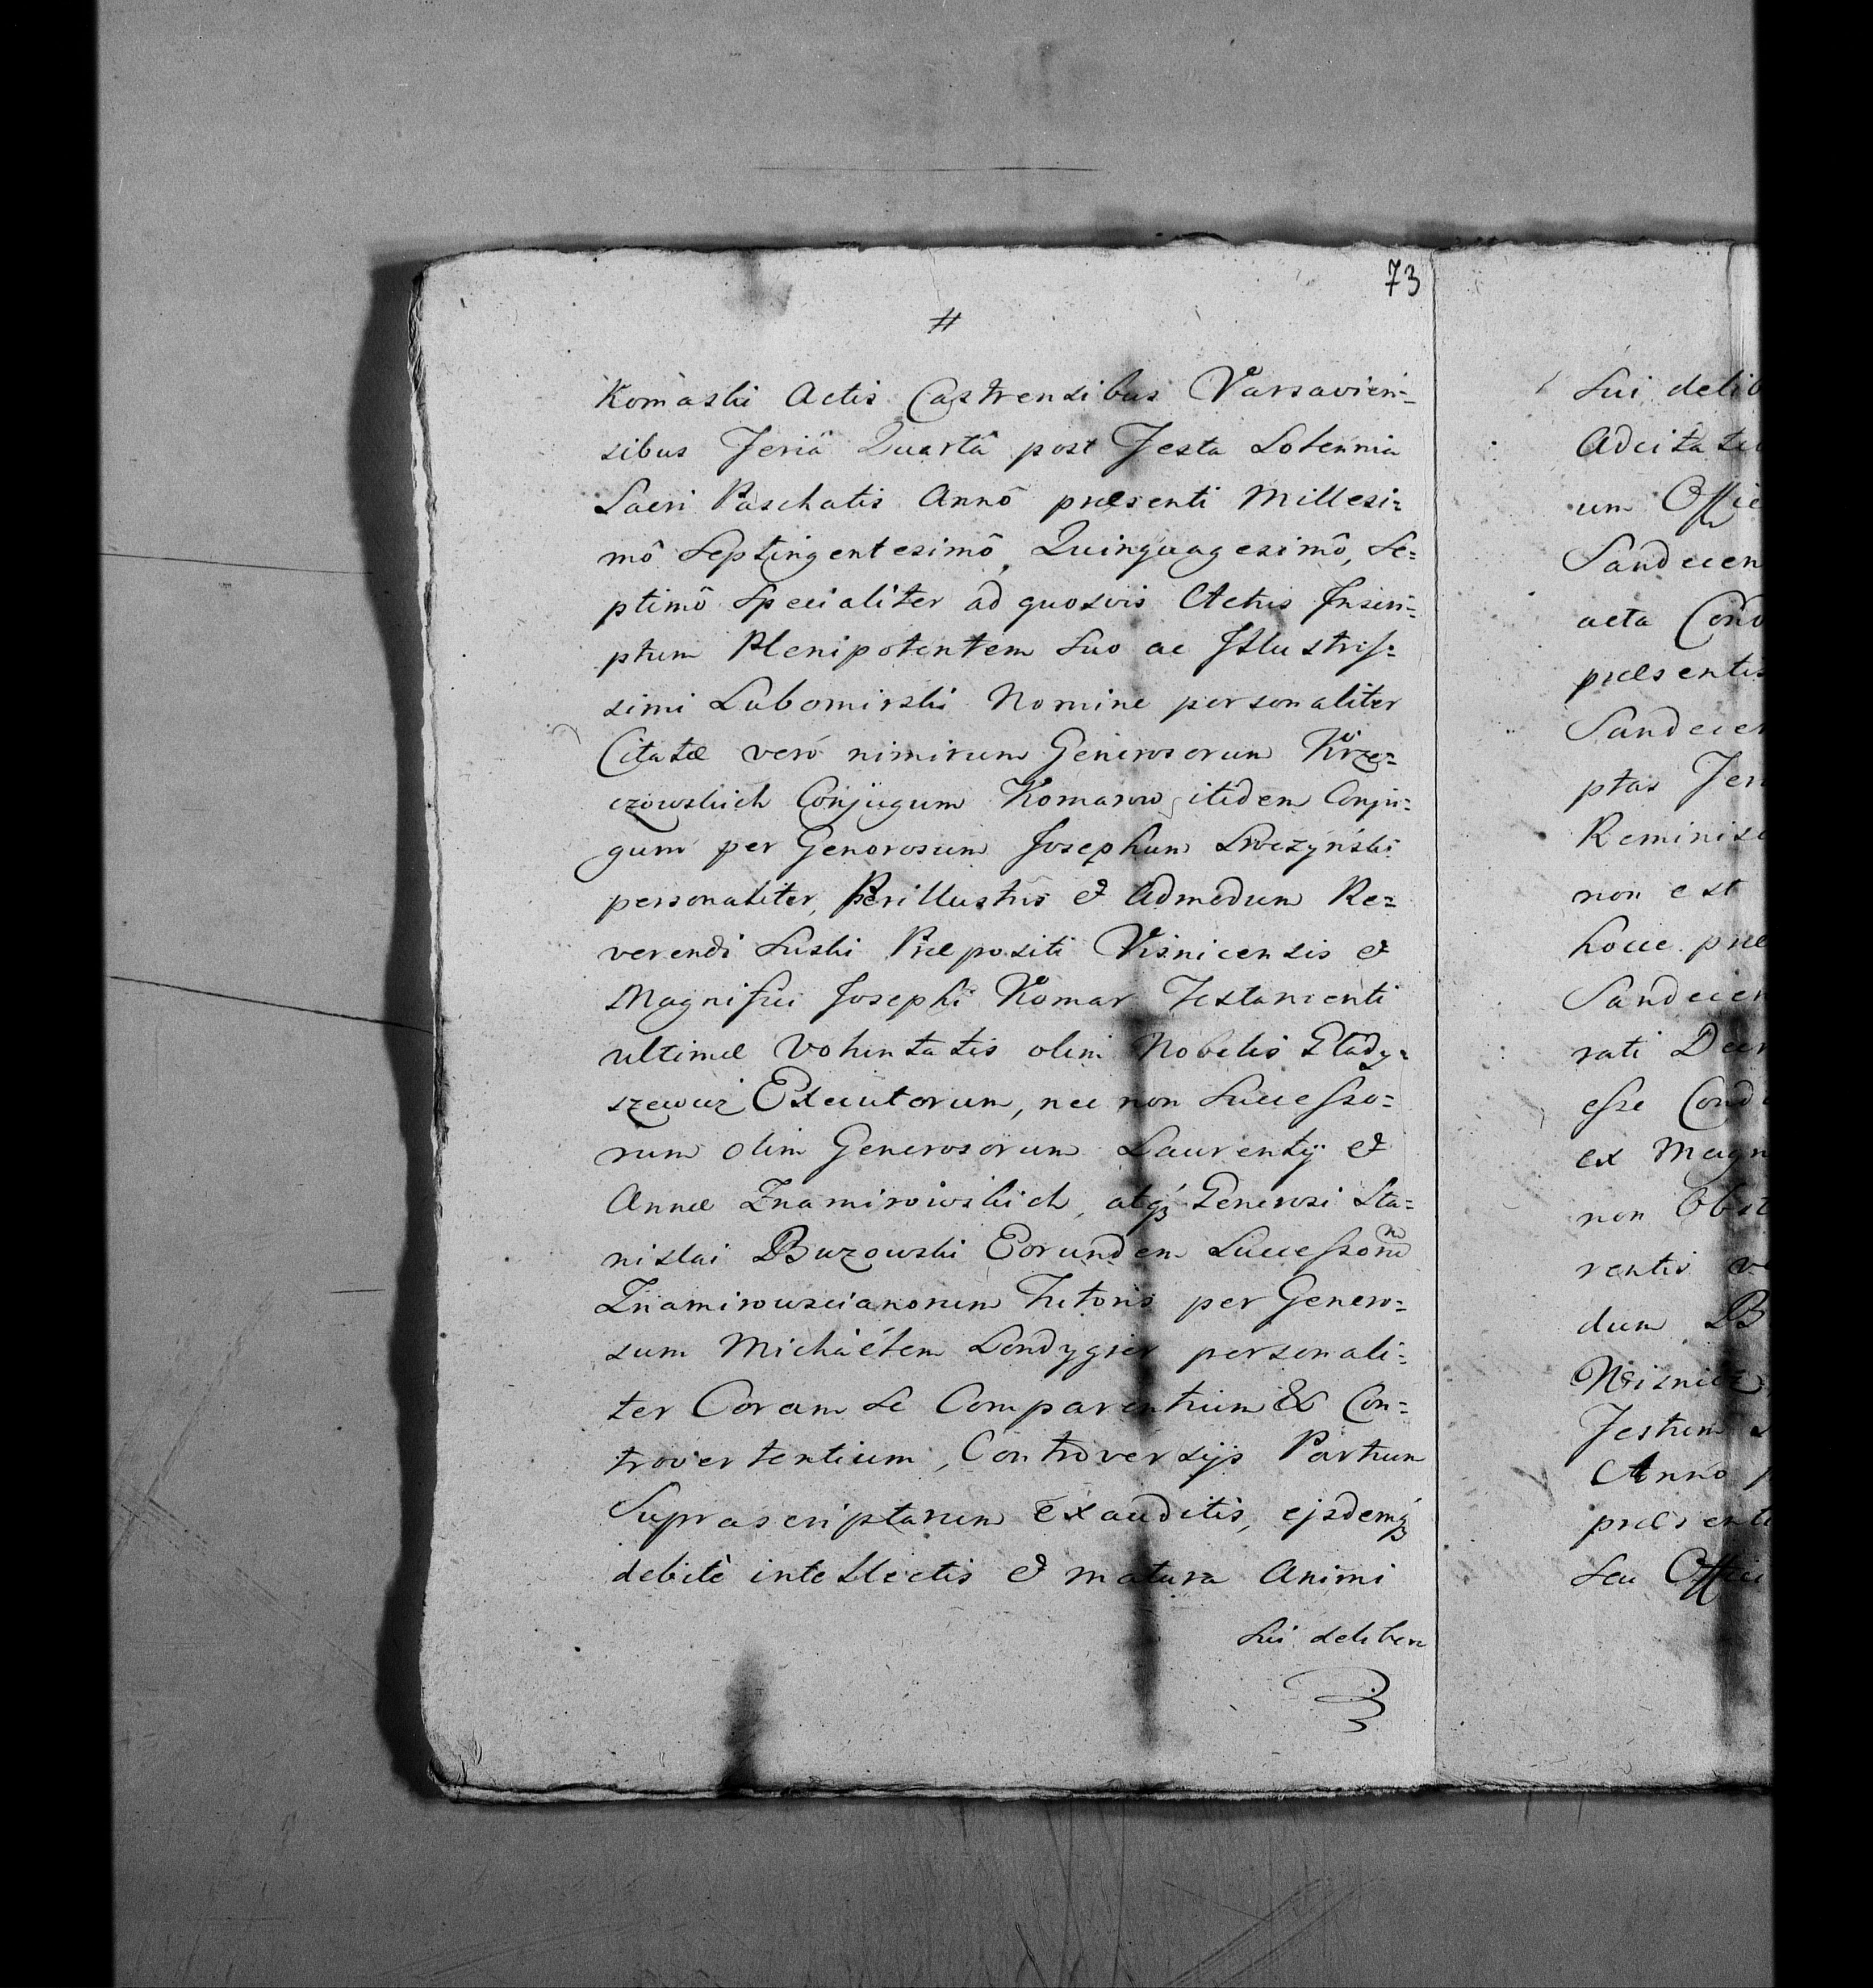 73
#
Komaski Actis Castrensibus Varsavien=
sibus Feriâ Quartâ post Festa Solennia
Sacri Paschatis Annô præsenti Millesi=
mô Septingentesimô Quinquagesimô, Se=
ptimô Specialiter ad quosvis Actus Inscri=
ptum Plenipotentem Suo ac Illustris=
simi Lubomirski Nomine personaliter
Citatæ verò nimirum Generosorum Krze=
czowskich Conjugum Komarow itidem Conju=
gum per Generosum Josephum
personaliter, Perillustris et Admodum Re=
verendi Suski Præpositi Visnicensis et
Magnifici Josephi Komar Testamenti
ultimæ Voluntatis olim Nobilis Glady=
szewicz Executorum, nec non Successo=
rum olim Generosorum Laurentÿ et
Annæ Znamirowskich, atq3 Generosi Sta=
nislai Buzowski Eorundem Successorum
Znamirowscianorum Tutoris per Genero=
sum Michaélem Londygier personali=
ter Coram Se Comparentium & Con=
trovertentium, Controversijs Partium
Suprascriptarum exauditis, ejsdemq3
debitè intellectis et matura Animi
Sui delibera
Sui delib
Adcitatio
um Offic
Sandecen
acta Cond
præsentis
Sandecen
ptas Fer
Reminisc
non est
hocce præ
Sandecen
rati Decr
esse Cond
ex Magn
non Obst
rentis
dum B
Wisnicz
Festum
Anno
præsenti
Seu Offici